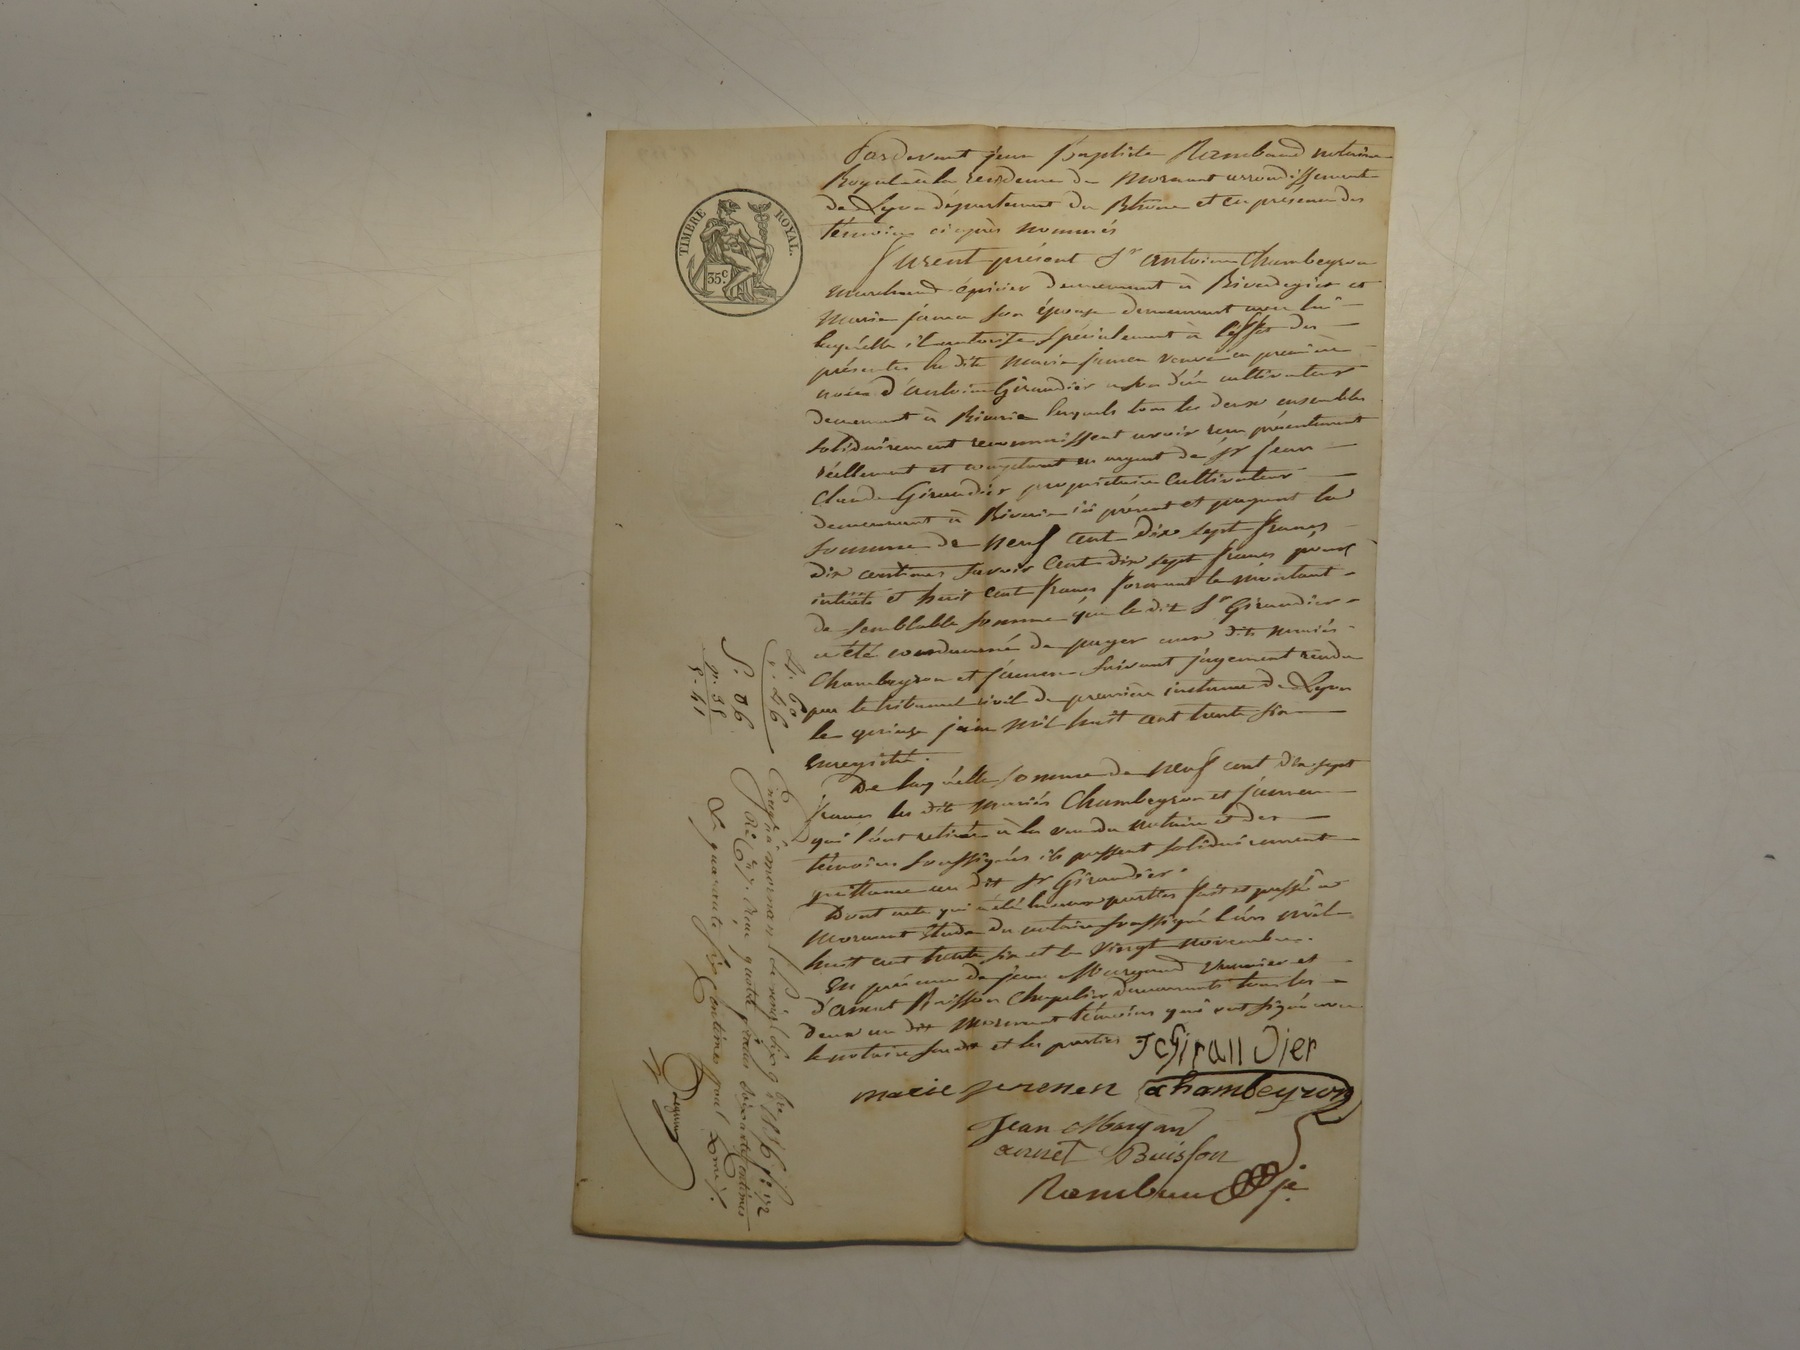 TIMBRE ROYAL.
35c.
Pardevant jean Baptiste Rambaud notaire
Royal à la residence de Mornant arrondissement
de Lyon département du Rhône et en présence des
témoins ci après nommés
furent présent Sr antoine Chambeyron
marchand épicier demeurant à Rivedegier et
marie jamen son épouse demeurant avec lui
laquelle il autorise spécialement à l'effet des
présentes la dite marie jamen veuve en première
noces d'antoine Girandier cultivateur
demeurant à Riverie lesquels tous les deux ensembles
solidairement reconnaissent avoir reçu présentement
réellement et comptant en argent de Sr jean
Claude Girandier propriétaire cultivateur
demeurant à Riverie ici présent et payant la
somme de neuf cent dix sept francs
dix centimes savoir Cent dix sept francs pour
intérêts et huit cent francs formant le montant
de semblable somme que le dit Sr Girandier
a été condamné de payer aux dits mariés
Chambeyron et jamen suivant jugement rendu
par le tribunal civil de première instance de Lyon
le quinze juin mil huit cent trente six
enregistré.
De laquelle somme de neuf cent dix sept
francs les dit mariés Chambeyron et jamen
qui l'ont retirée à la vue du notaire et des
témoins soussignés ils passent solidairement
quittance au dit Sr Girandier.
Dont acte qui a été lu aux parties fait et passé à
Mornant étude du notaire soussigné l'an mil
huit cent trente six et le vingt novembre.
En présence de jean Mourgand et
d'annet Buisson Chapelier demeurants tous les
deux au dit Mornant témoins qui ont signé avec
le notaire susdit et les parties
JC Girandier
marie jemen achambeyron
Jean
annet Buisson
Rambaud
4. 60
". 46
5. 06
". 35
5. 41
Enregré à mornant le vingt six 9bre 1836 fo 72
Rc. Reçu quatre francs soixante Centimes
Le quarante six Centimes pour